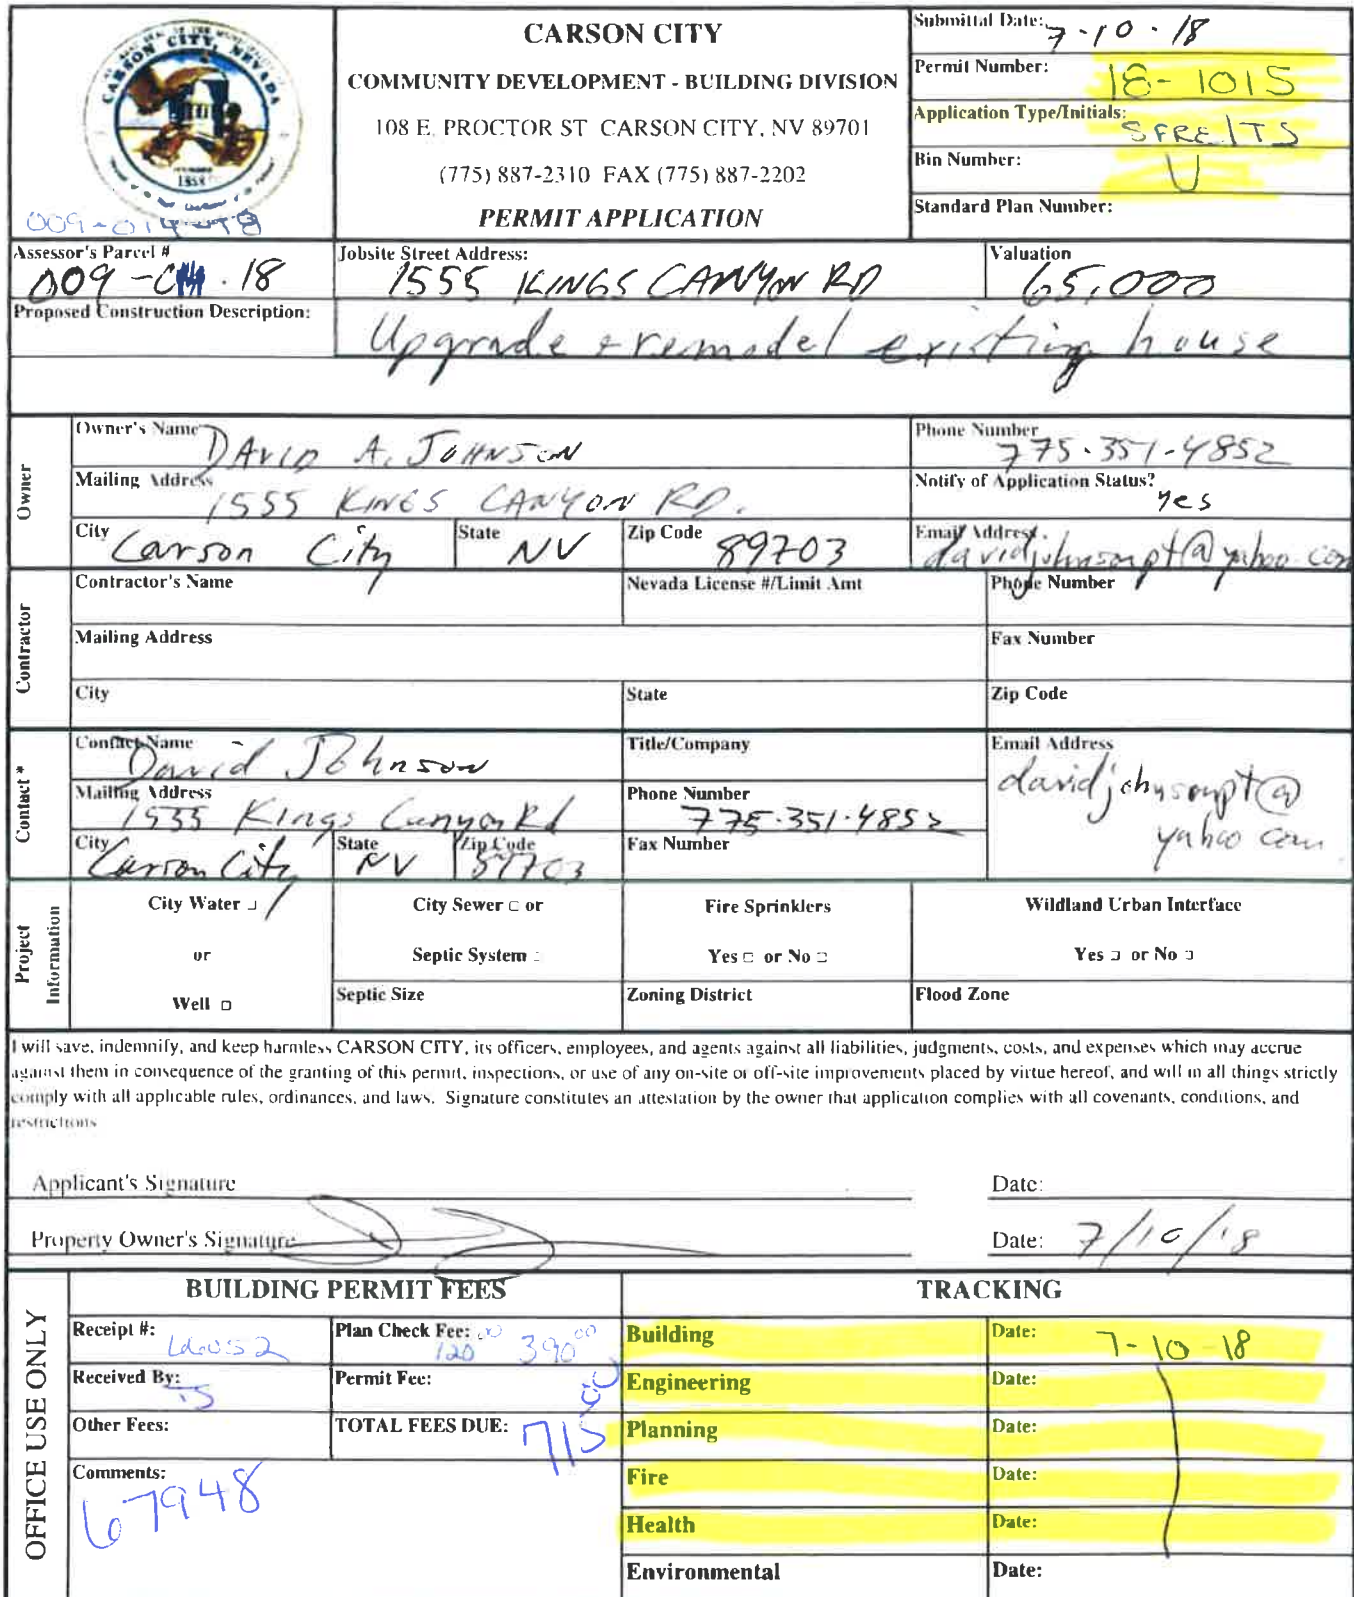 CARSON CITY, NEVADA
1858
009-014-18
CARSON CITY
COMMUNITY DEVELOPMENT - BUILDING DIVISION
108 E. PROCTOR ST CARSON CITY, NV 89701
(775) 887-2310 FAX (775) 887-2202
PERMIT APPLICATION
Submittal Date: 7-10-18
Permit Number: 18-1015
Application Type/Initials: SFRE/TS
Bin Number: U
Standard Plan Number:
Assessor's Parcel # 009 - 18
Jobsite Street Address: 1555 KINGS CANYON RD
Valuation 65,000
Proposed Construction Description: Upgrade + remodel existing house
Owner
Owner's Name DAVID A. JOHNSON
Phone Number 775-351-4852
Mailing Address 1555 KINGS CANYON RD.
Notify of Application Status? Yes
City Carson City State NV Zip Code 89703
Email Address davidjohnsonpt@yahoo.com
Contractor
Contractor's Name
Nevada License #/Limit Amt
Phone Number
Mailing Address
Fax Number
City
State
Zip Code
Contact *
Contact Name David Johnson
Title/Company
Email Address davidjohnsonpt@
yahoo com
Mailing Address 1555 Kings Canyon Rd
Phone Number 775-351-4852
City Carson City State NV Zip Code 89703
Fax Number
Project Information
City Water
or
Well
City Sewer or
Septic System
Septic Size
Fire Sprinklers
Yes or No
Zoning District
Wildland Urban Interface
Yes or No
Flood Zone
I will save, indemnify, and keep harmless CARSON CITY, its officers, employees, and agents against all liabilities, judgments, costs, and expenses which may accrue
against them in consequence of the granting of this permit, inspections, or use of any on-site or off-site improvements placed by virtue hereof, and will in all things strictly
comply with all applicable rules, ordinances, and laws. Signature constitutes an attestation by the owner that application complies with all covenants, conditions, and
restrictions
Applicant's Signature Date:
Property Owner's Signature Date: 7/10/18
OFFICE USE ONLY
BUILDING PERMIT FEES
Receipt #: 66052
Plan Check Fee: 120.00 390.00
Received By: TS
Permit Fee:
Other Fees:
TOTAL FEES DUE: 715.00
Comments:
67948
TRACKING
Building Date: 7-10-18
Engineering Date:
Planning Date:
Fire Date:
Health Date:
Environmental Date: